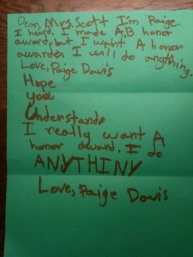 Dear, Mrs. Scott I'm Paige.
I hope I made A,B honor
award, but I want A honor
awarder I will do anything.
Love, Paige Davis
Hope
you
Understand,
I really want A
honor award. I do
ANYTHINY
Love, Paige Davis